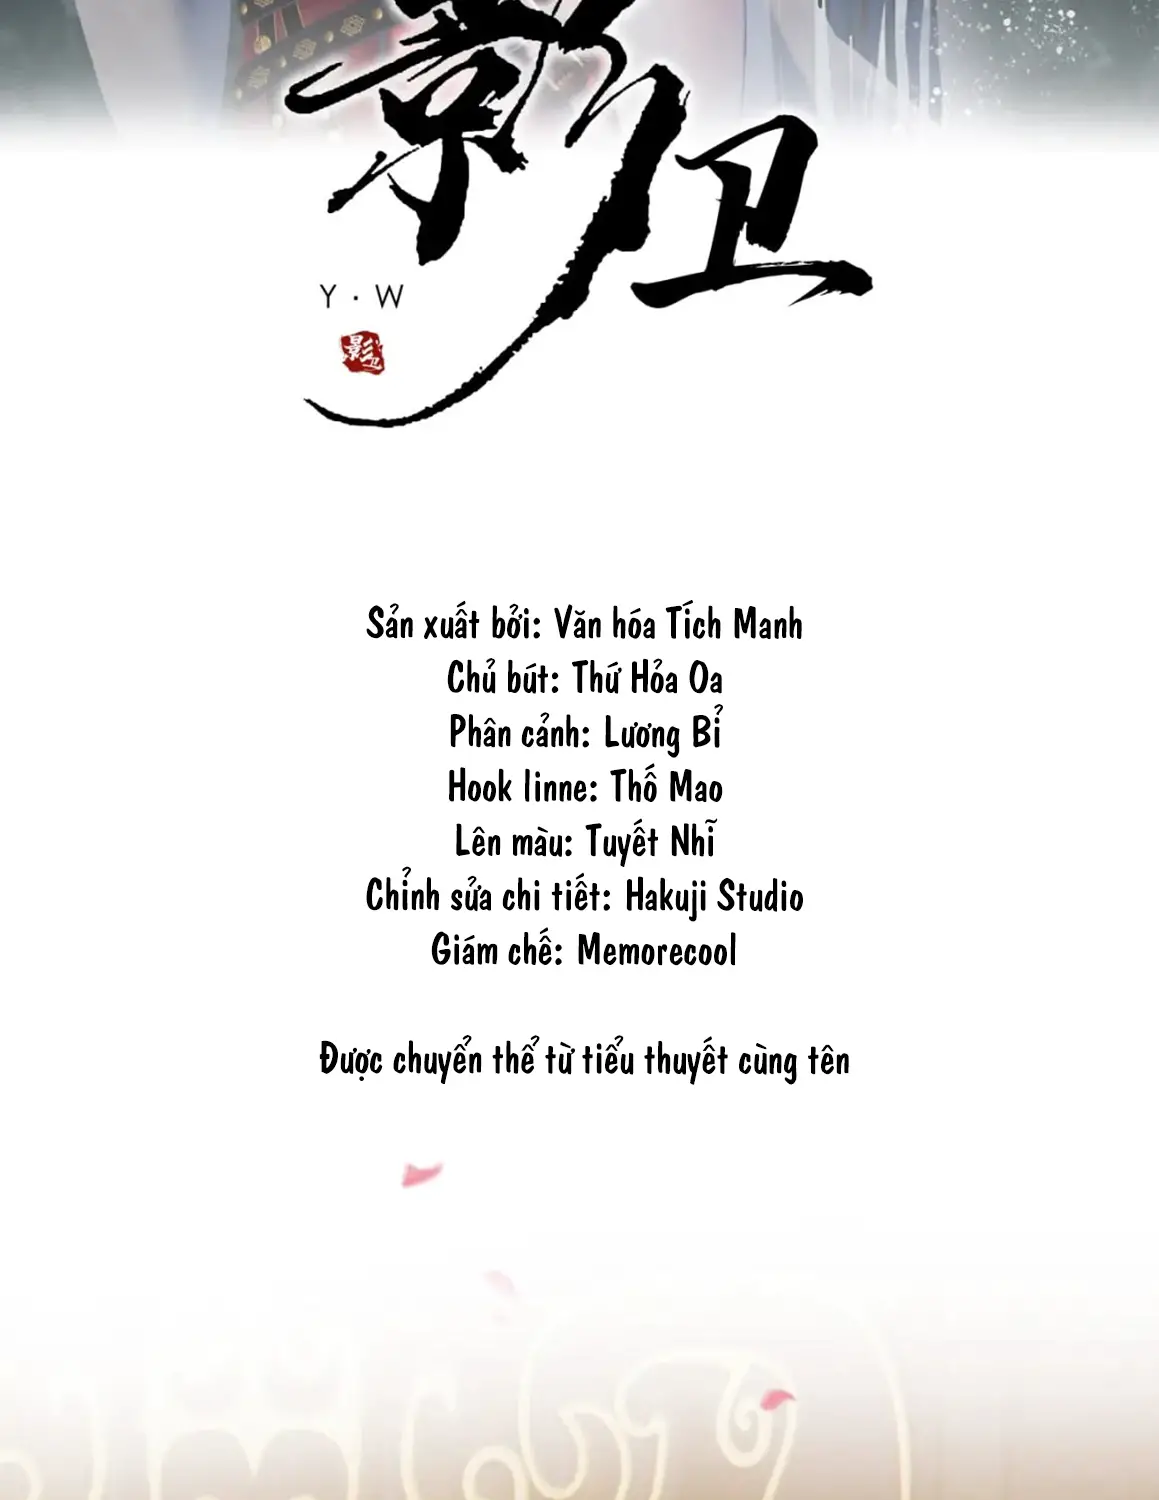 影卫
Y · W
影卫
Sản xuất bởi: Văn hóa Tích Manh
Chủ bút: Thứ Hỏa Oa
Phân cảnh: Lương Bỉ
Hook linne: Thố Mao
Lên màu: Tuyết Nhĩ
Chỉnh sửa chi tiết: Hakuji Studio
Giám chế: Memorecool
Được chuyển thể từ tiểu thuyết cùng tên